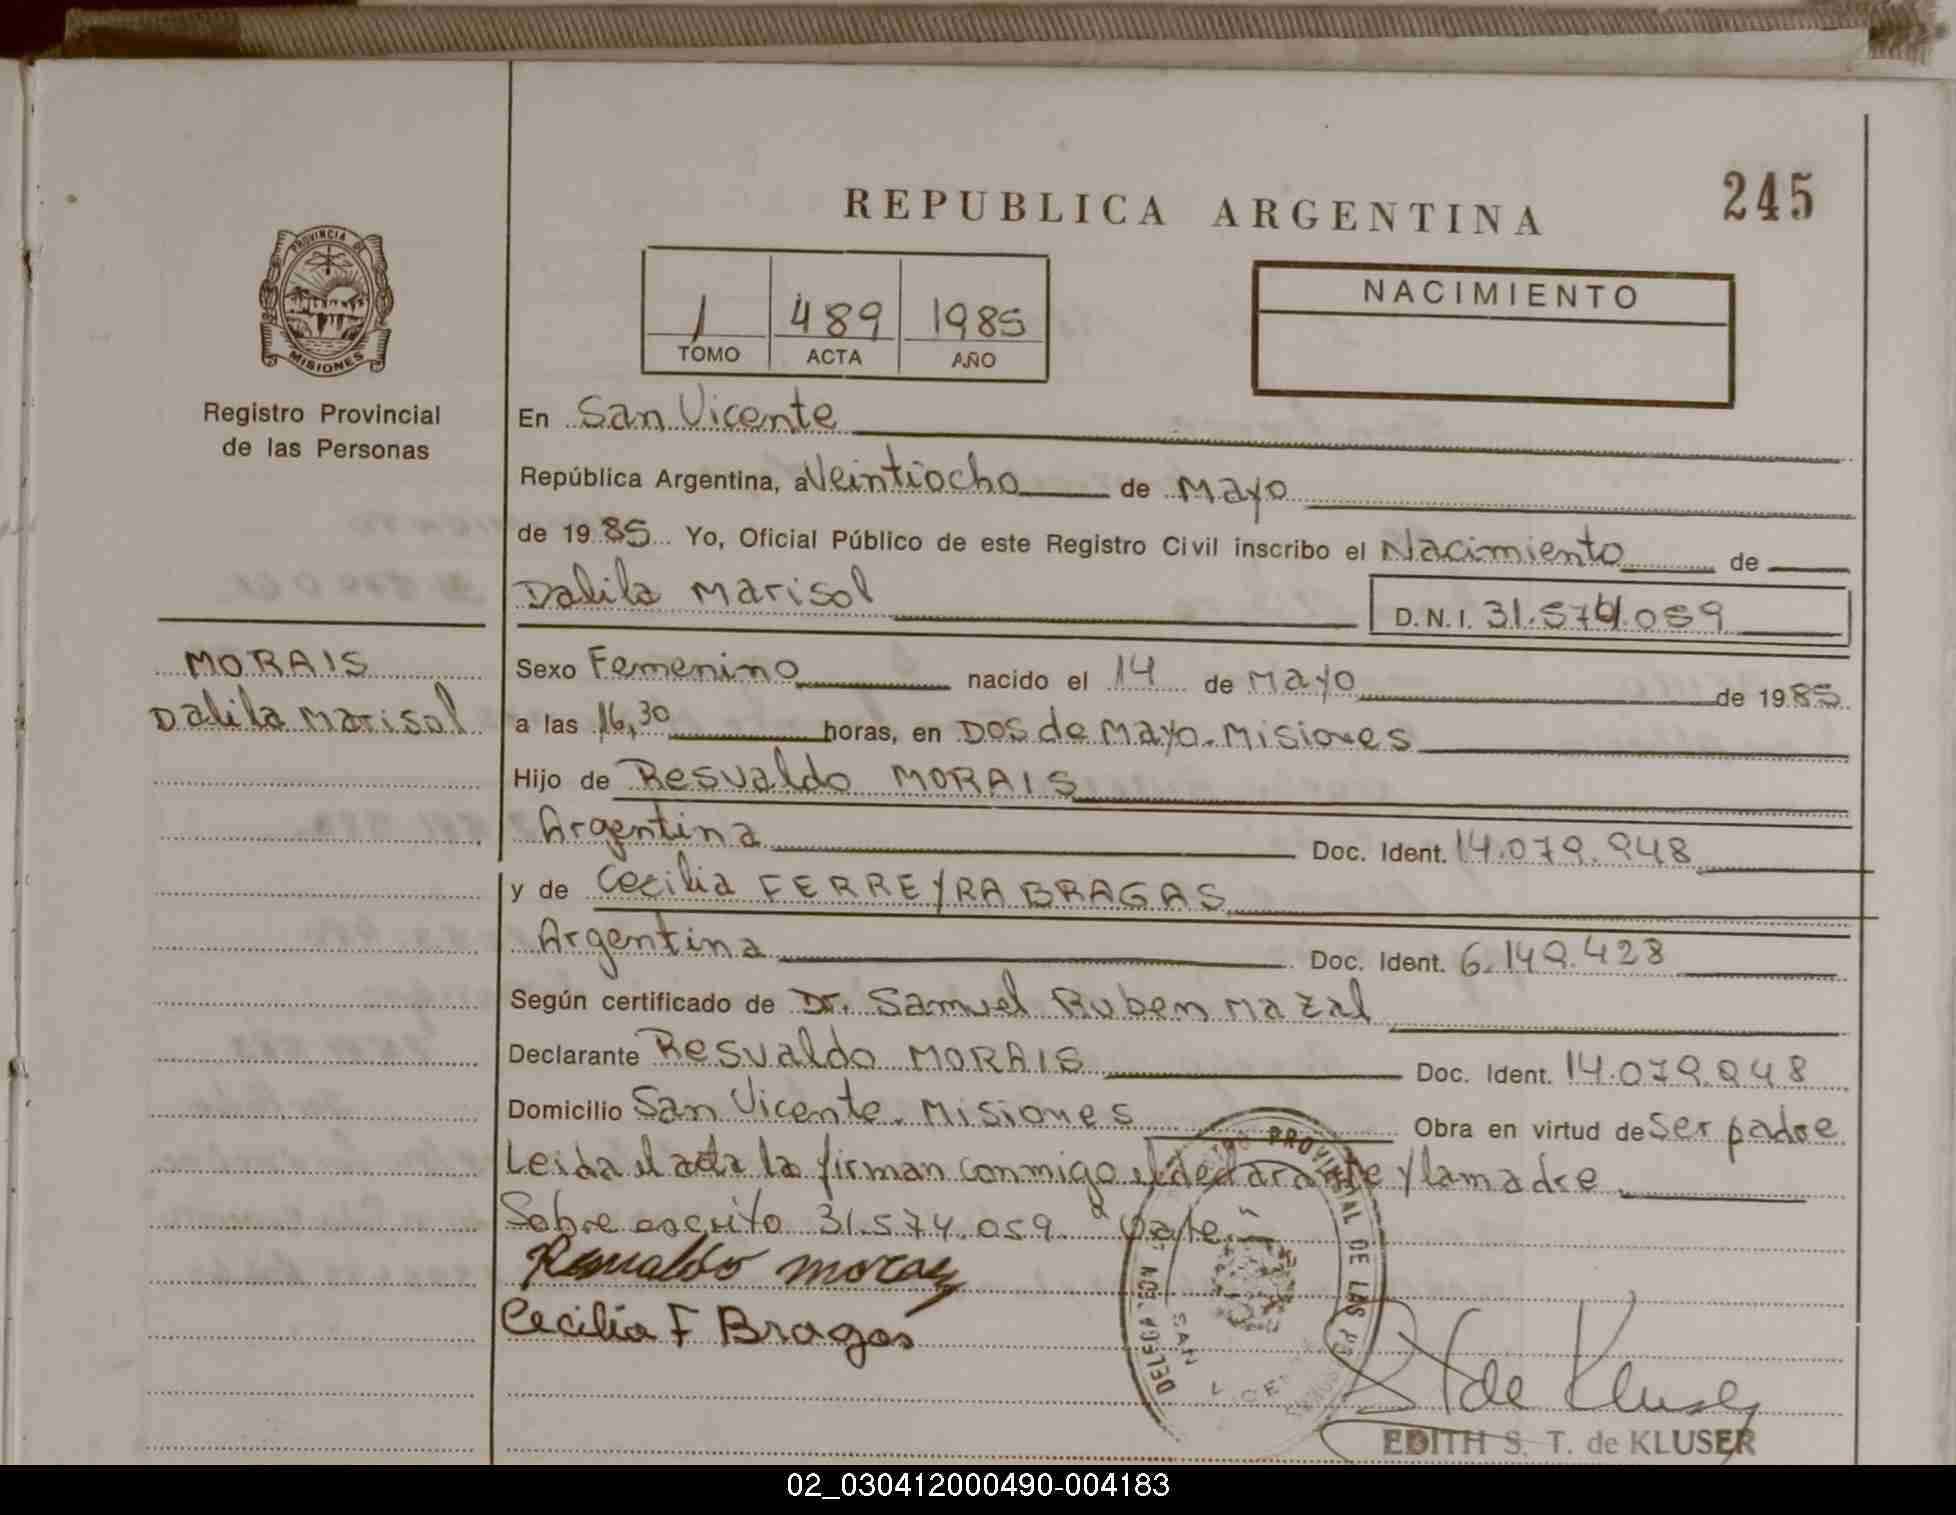 245
REPUBLICA ARGENTINA
PROVINCIA DE
MISIONES
Registro Provincial
de las Personas
1 489 1985
TOMO ACTA AÑO
NACIMIENTO
En San Vicente
República Argentina, a Veintiocho de Mayo
de 19 85 Yo, Oficial Público de este Registro Civil inscribo el Nacimiento de
Dalila Marisol D.N.I. 31.574.059
MORAIS
Dalila Marisol
Sexo Femenino nacido el 14 de Mayo de 1985
a las 16,30 horas, en Dos de Mayo. Misiones
Hijo de Resvaldo MORAIS
Argentina Doc. Ident. 14.079.948
y de Cecilia FERREYRA BRAGAS
Argentina Doc. Ident. 6.149.428
Según certificado de Dr. Samuel Ruben Mazal
Declarante Resvaldo MORAIS Doc. Ident. 14.079.948
Domicilio San Vicente. Misiones Obra en virtud de ser padre
Leida el acta la firman conmigo el declarante y la madre
Sobre escrito 31.574.059 "Vale"
Resvaldo morais
Cecilia F Bragas
PROVINCIAL DE LAS
SAN VICENTE
ST de Kluser
EDITH S. T. de KLUSER
02_030412000490-004183